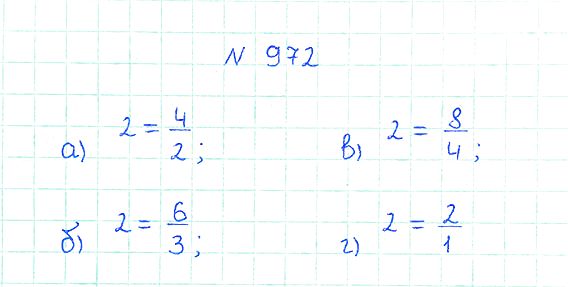 N 972
а) 2 = 4/2; в) 2 = 8/4;
б) 2 = 6/3; г) 2 = 2/1